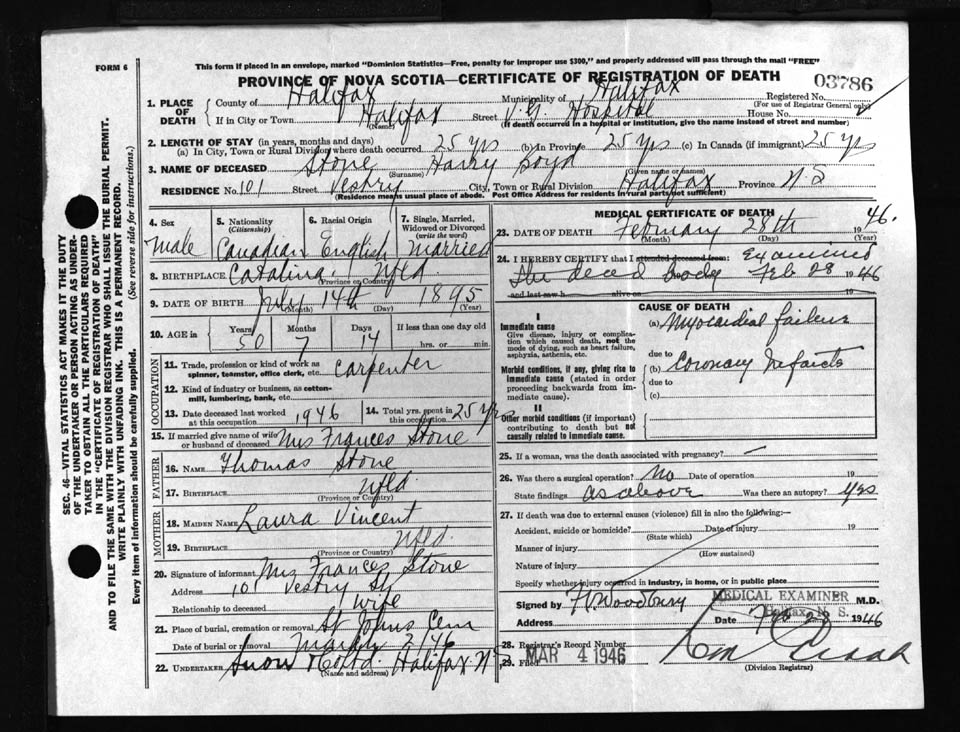 This form if placed in an envelope, marked "Dominion Statistics—Free, penalty for improper use $300," and properly addressed will pass through the mail "FREE"
FORM 6
PROVINCE OF NOVA SCOTIA—CERTIFICATE OF REGISTRATION OF DEATH
03786
1. PLACE OF DEATH { County of Halifax Municipality of Halifax Registered No.
(For use of Registrar General only)
If in City or Town Halifax Street V.G. Hospital House No.
(Name) (If death occurred in a hospital or institution, give the name instead of street and number)
2. LENGTH OF STAY (in years, months and days)
(a) In City, Town or Rural Division where death occurred 25 yrs (b) In Province 25 yrs (c) In Canada (if immigrant) 25 yrs
3. NAME OF DECEASED Stone Harry Boyd
(Surname) (Given name or names)
RESIDENCE No. 101 Street Vestry City, Town or Rural Division Halifax Province N.S
(Residence means usual place of abode. Post Office Address for residents in rural parts not sufficient)
4. Sex 5. Nationality (Citizenship) 6. Racial Origin 7. Single, Married, Widowed or Divorced (write the word)
Male Canadian English Married
8. BIRTHPLACE Catalina, Nfld.
(Province or Country)
9. DATE OF BIRTH July 14th 1895
(Month) (Day) (Year)
10. AGE in Years Months Days If less than one day old
50 7 14 hrs. or min.
OCCUPATION
11. Trade, profession or kind of work as spinner, teamster, office clerk, etc. Carpenter
12. Kind of industry or business, as cotton-mill, lumbering, bank, etc.
13. Date deceased last worked at this occupation 1946 14. Total yrs. spent in this occupation 25 yrs
15. If married give name of wife or husband of deceased Mrs Frances Stone
FATHER
16. NAME Thomas Stone
17. BIRTHPLACE Nfld.
(Province or Country)
MOTHER
18. MAIDEN NAME Laura Vincent
19. BIRTHPLACE Nfld.
(Province or Country)
20. Signature of informant Mrs Frances Stone
Address 101 Vestry St
Relationship to deceased wife
21. Place of burial, cremation or removal St Johns Cem
Date of burial or removal March 2/46
22. UNDERTAKER Snow & Co Ltd. Halifax N.S
(Name and address)
MEDICAL CERTIFICATE OF DEATH
23. DATE OF DEATH February 28th 1946.
(Month) (Day) (Year)
24. I HEREBY CERTIFY that I attended deceased from: Examined
the dead body Feb 28 1946
and last saw h alive on 19
CAUSE OF DEATH
I
Immediate cause
Give disease, injury or complication which caused death, not the mode of dying, such as heart failure, asphyxia, asthenia, etc.
(a) Myocardial failure
due to
Morbid conditions, if any, giving rise to immediate cause (stated in order proceeding backwards from immediate cause).
(b) Coronary Infarcts
due to
(c)
II
Other morbid conditions (if important) contributing to death but not causally related to immediate cause.
25. If a woman, was the death associated with pregnancy? —
26. Was there a surgical operation? No Date of operation 19
State findings as above Was there an autopsy? Yes
27. If death was due to external causes (violence) fill in also the following:—
Accident, suicide or homicide? Date of injury 19
(State which)
Manner of injury
(How sustained)
Nature of injury
Specify whether injury occurred in industry, in home, or in public place
Signed by Woodbury MEDICAL EXAMINER M.D.
Halifax, N. S.
Address Date Feb 28 1946
28. Registrar's Record Number
29. Filed MAR 4 1946
(Division Registrar)
SEC. 46—VITAL STATISTICS ACT MAKES IT THE DUTY
OF THE UNDERTAKER OR PERSON ACTING AS UNDER-
TAKER TO OBTAIN ALL THE PARTICULARS REQUIRED
IN THE "CERTIFICATE OF REGISTRATION OF DEATH"
AND TO FILE THE SAME WITH THE DIVISION REGISTRAR WHO SHALL ISSUE THE BURIAL PERMIT.
WRITE PLAINLY WITH UNFADING INK. THIS IS A PERMANENT RECORD.
Every item of information should be carefully supplied. (See reverse side for instructions.)